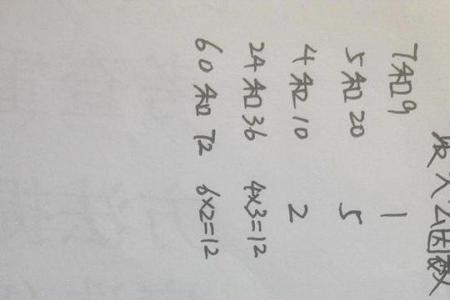 最大公因数
7和9 1
5和20 5
4和10 2
24和36 4×3=12
60和72 6×2=12